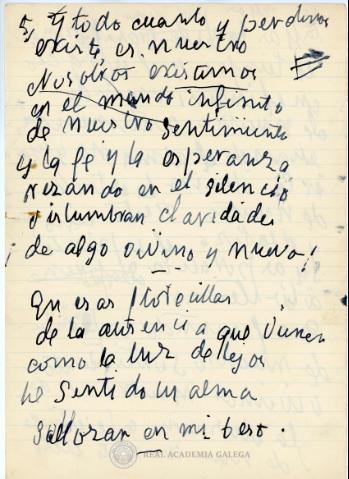 5/ Y todo cuanto y perdimos
existe, es nuestro
Nosotros existimos
en el mundo infinito
de nuestro sentimiento
y la fe y la esperanza
rezando en el silencio
vislumbran claridades
¡de algo divino y nuevo!
—
En esas
de la ausencia que vienen
como la luz de lejos
he sentido tu alma
sollozar en mi beso.
REAL ACADEMIA GALEGA